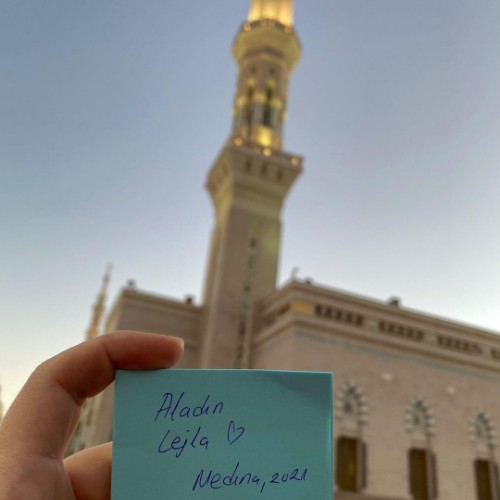 Aladin
Lejla ♡
Medina, 2021